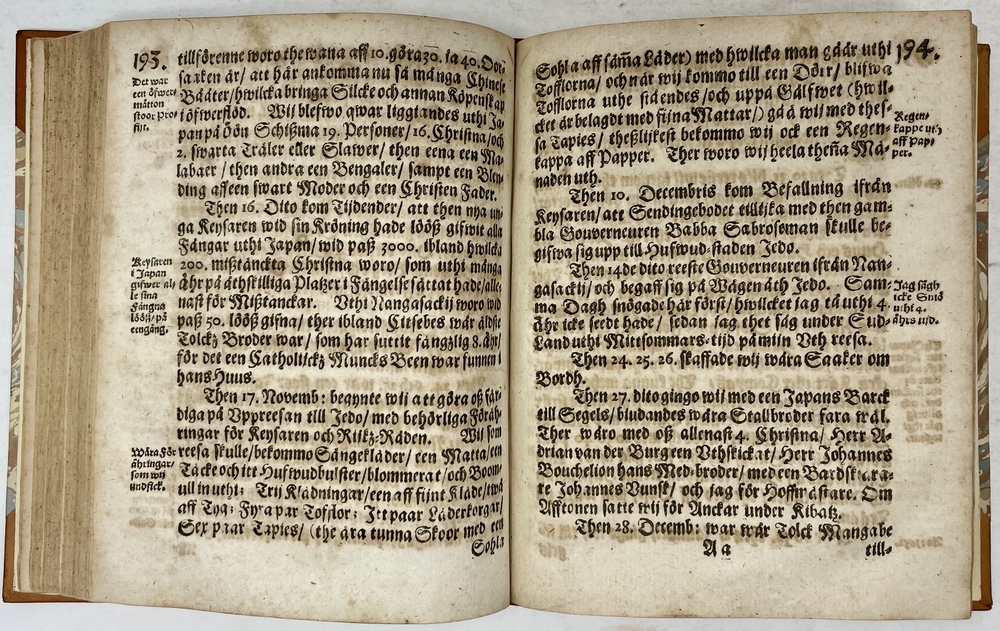 193.
tillförenne woro the wana aff 10. göra 30. ia 40. Oor-
saaken är/ att här ankomma nu så många Chinese
Bååter/hwilcka bringa Silcke och annan Köpenskap
i öfwerflöd. Wij blefwo qwar liggiandes uthi Ja-
pan på Öön Schißma 19. Personer/ 16. Christna/och
2. swarta Träler eller Slafwer/ then eena een Ma-
labaer / then andra een Bengaler/ sampt een Blen-
ding aff een swart Moder och een Christen Fader.
Then 16. Dito kom Tijdender/ att then nya un-
ga Keysaren wid sin Kröning hade lööß gifwit alla
Fångar uthi Japan/ wid paß 3000. ibland hwilcka
200. mißtänckta Christna woro/ som uthi många
Åhr på åthskilliga Platzer i Fängelse sattat hade/alle-
nast för Mißtanckar. Uthi Nangasackij woro wid
paß 50. lööß gifna/ ther ibland Citsebes wår äldste
Tolckz Broder war/ som har suttit fångzlig 8. åhr/
för det een Catholickz Muncks Been war funnin i
hans Huus.
Then 17. Novemb: begynte wij att göra oß fär-
diga på Vppreesan till Jedo/ med behörliga Föräh-
ringar för Keysaren och Rijkz-Råden. Wij som
reesa skulle/bekommo Sängekläder/ een Matta/een
Täcke och itt Hufwudbulster/blommerat/och Boom-
ull in uthi; Trij Klädningar/een aff fijnt Kläde/twå
aff Tyg; Fyra par Tofflor; Itt paar Läderkorgar/
Sex paar Tapies/ (the ära tunna Skoor med een
Sohla
Det war
een öfwer-
måtton
stoor Pro-
fijt.
Keysaren
i Japan
gifwer al-
le sina
Fångna
lööß/på
eengång.
Wåra För-
ähringar/
som wij
undfick.
194.
Sohla aff sam̃a Läder) med hwilcka man gåår uthi
Tofflorna/ och när wij kommo till een Dörr/ blifwa
Tofflorna uthe ståendes /och uppå Gålfwet (hwil-
cket är belagdt med fijna Mattar/) gåå wij med thes-
sa Tapies/ theßlijkest bekommo wij ock een Regen-
kappa aff Papper. Ther woro wij heela then̄a Må-
naden uth.
Then 10. Decembris kom Befallning ifrån
Keysaren/ att Sendingebodet tillijka med then gam-
bla Gouverneuren Babba Sabroseman skulle be-
gifwa sig upp till Hufwud-staden Jedo.
Then 14 de dito reeste Gouverneuren ifrån Nan-
gasackij/ och begaff sig på Wägen åth Jedo. Sam-
ma Dagh snögade här först/ hwilcket jag tå uthi 4.
Åhr icke seedt hade/ sedan jag thet såg under Sud-
Land uthi Mittsommars-tijd på mijn Vth reesa.
Then 24. 25. 26. skaffade wij wåra Saaker om
Bordh.
Then 27. dito gingo wij med een Japans Barck
till Segels/ biudandes wåra Stallbroder fara wäl.
Ther wåro med oß allenast 4. Christna/ Herr A-
drian van der Burg een Vthskickat/ Herr Johannes
Bouchelion hans Med-broder/ med een Bardskära-
re Johannes Vunsk/ och jag för Hoffmästare. Om
Afftonen satte wij för Anckar under Kibatz.
Then 28. Decemb: war wår Tolck Mangabe
A a
till-
Regen-
kappe uth
aff Pap-
per.
Jag sågh
icke Sniö
uthi 4.
åhrs tijd.